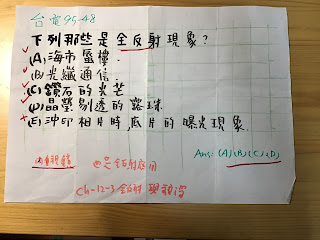 台電95-48
下列那些是全反射現象?
(A)海市蜃樓.
(B)光纖通信.
(C)鑽石的光芒
(D)晶瑩剔透的露珠.
(E)沖印相片時底片的曝光現象.
Ans: (A)(B)(C)(D)
內視鏡 也是全反射應用
ch-12-3 全反射